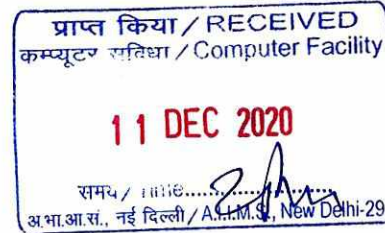 प्राप्त किया / RECEIVED
कम्प्यूटर सुविधा / Computer Facility
11 DEC 2020
समय / Time
अ.भा.आ.सं., नई दिल्ली / A.I.I.M.S., New Delhi-29